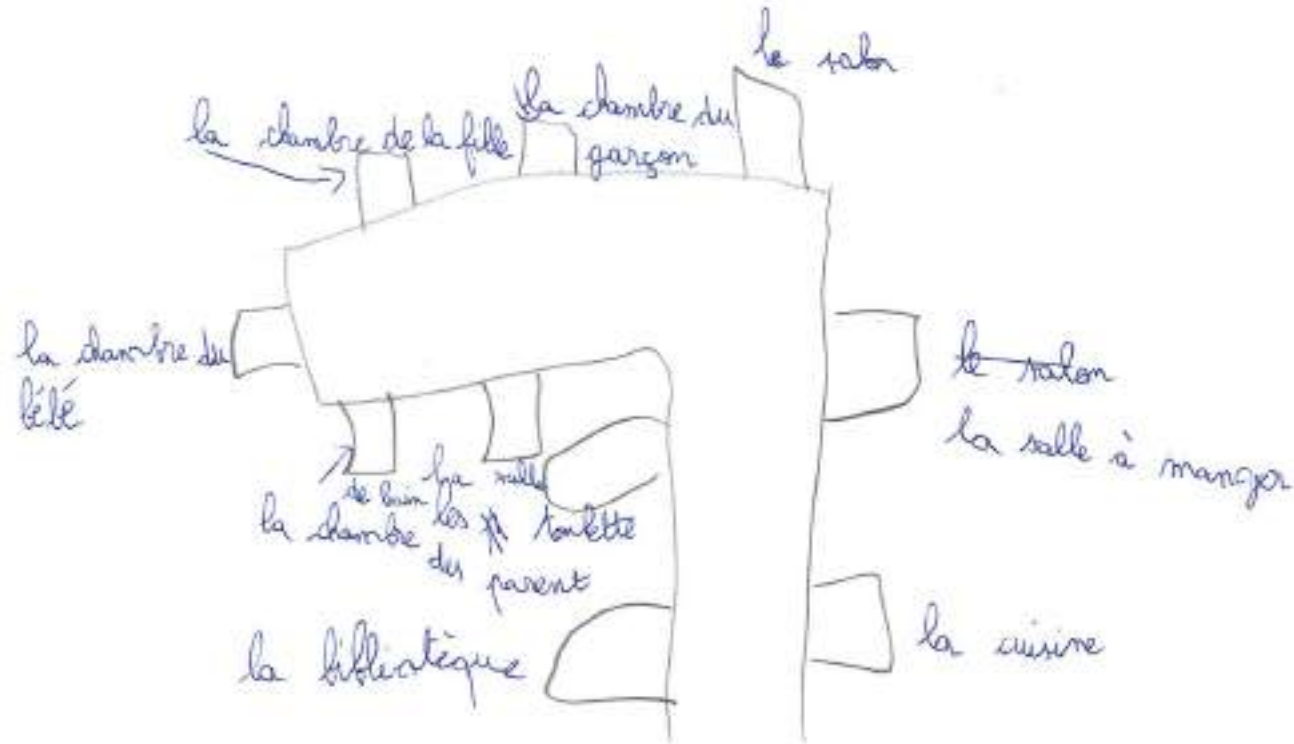 le salon
la chambre de la fille
la chambre du
garçon
la chambre du
bébé
le salon
la salle à manger
la salle
de bain
les toilette
la chambre
des parent
la bibliotèque
la cuisine